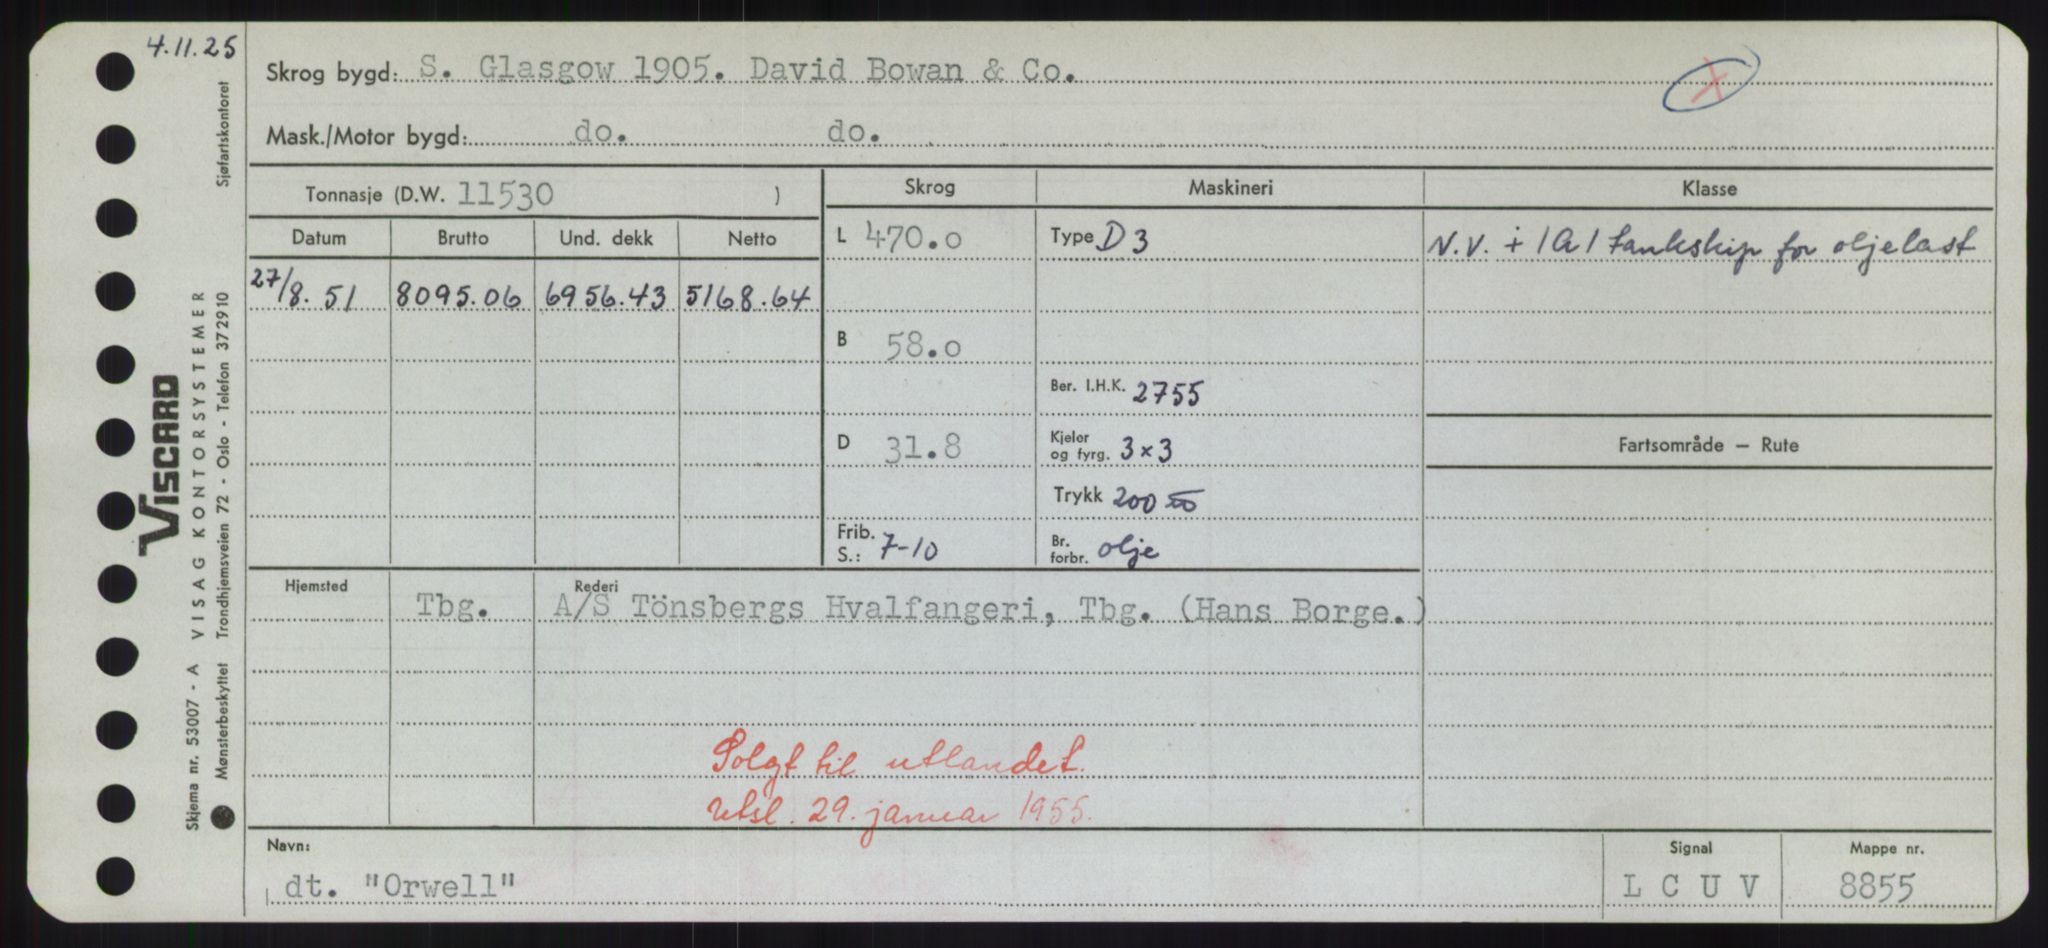 4.11.25
Skrog bygd: S. Glasgow 1905. David Bowan & Co.
X
Mask./Motor bygd: do. do.
Tonnasje (D.W. 11530 )
Skrog Maskineri Klasse
Datum Brutto Und. dekk Netto
L 470.0 Type D 3 N.V. + 1A1 tankskip for oljelast
27/8. 51 8095.06 6956.43 5168.64
B 58.0
Ber. I.H.K. 2755
D 31.8 Kjeler og fyrg. 3 x 3
Fartsområde — Rute
Trykk 200
Frib. S.: 7-10 Br. forbr. olje
Hjemsted Rederi
Tbg. A/S Tönsbergs Hvalfangeri, Tbg. (Hans Borge.)
Solgt til utlandet.
Utsl. 29. januar 1955.
Navn: Signal Mappe nr.
dt. "Orwell" L C U V 8855
VISCARD
Skjema nr. 53007 - A VISAG KONTORSYSTEMER
Mønsterbeskyttet Trondhjemsveien 72 - Oslo - Telefon 372910 Sjøfartskontoret